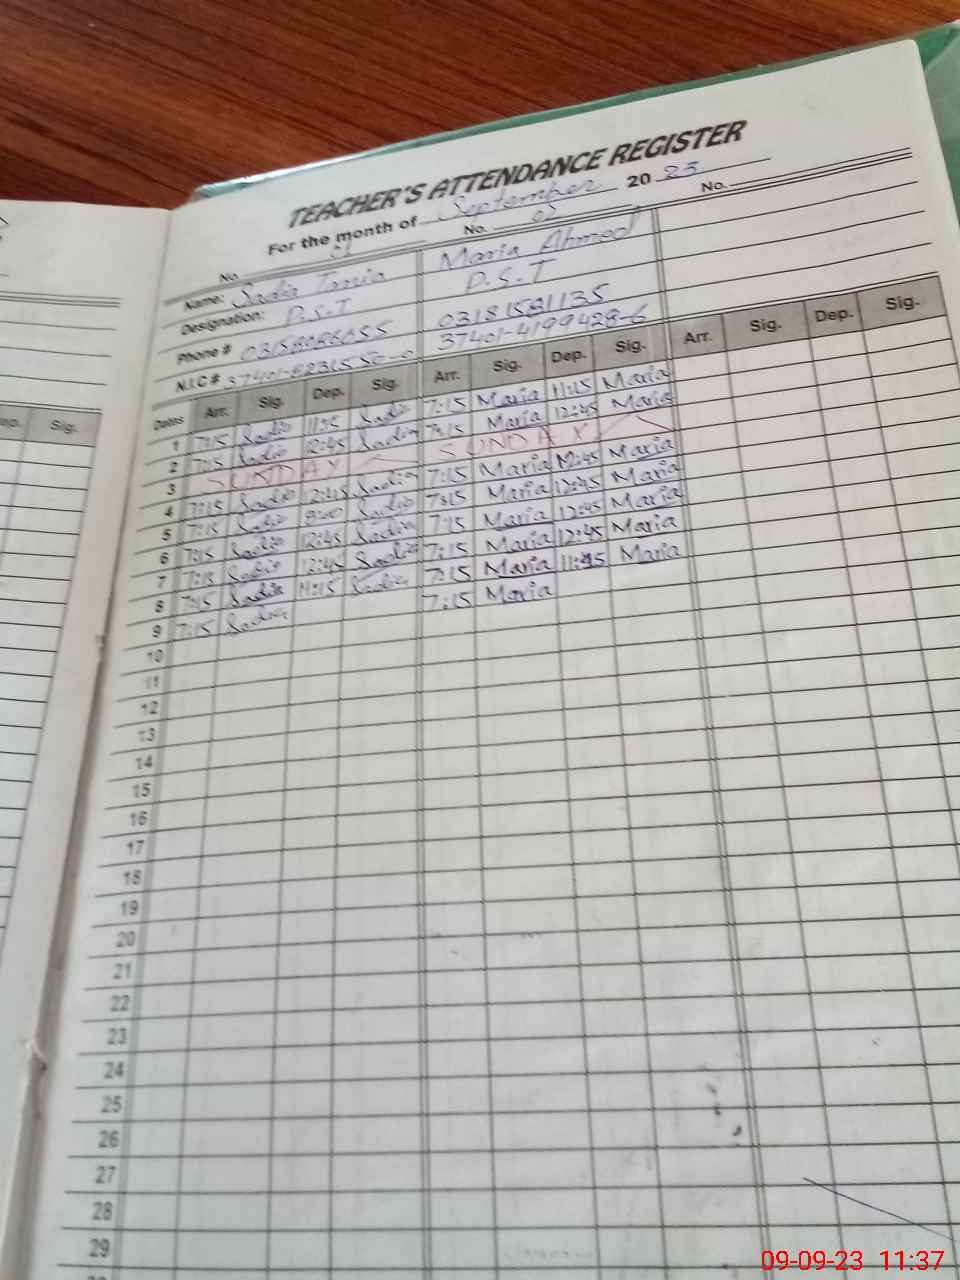 TEACHER'S ATTENDANCE REGISTER
For the month of September 20 23
No. 01 No. 02 No.
Name: Sadia Tania Maria Ahmed
Designation: P.S.T P.S.T
Phone # 03181581135
N.I.C # 37401-4199428-6
Dates Arr. Sig. Dep. Sig. Arr. Sig. Dep. Sig. Arr. Sig. Dep. Sig.
1 7:15 Sadia Sadia 7:15 Maria 11:15 Maria
2 7:15 Sadia 12:45 Sadia 7:15 Maria 12:45 Maria
3 SUNDAY SUNDAY
4 7:15 Sadia 12:45 Sadia 7:15 Maria 12:45 Maria
5 7:15 Sadia 8:00 Sadia 7:15 Maria 12:45 Maria
6 7:15 Sadia 12:45 Sadia 7:15 Maria 12:45 Maria
7 Sadia 12:45 Sadia 7:15 Maria 12:45 Maria
8 7:15 Sadia 11:15 Sadia 7:15 Maria Maria
9 7:15 Sadia 7:15 Maria
10
11
12
13
14
15
16
17
18
19
20
21
22
23
24
25
26
27
28
29
Sig.
09-09-23 11:37